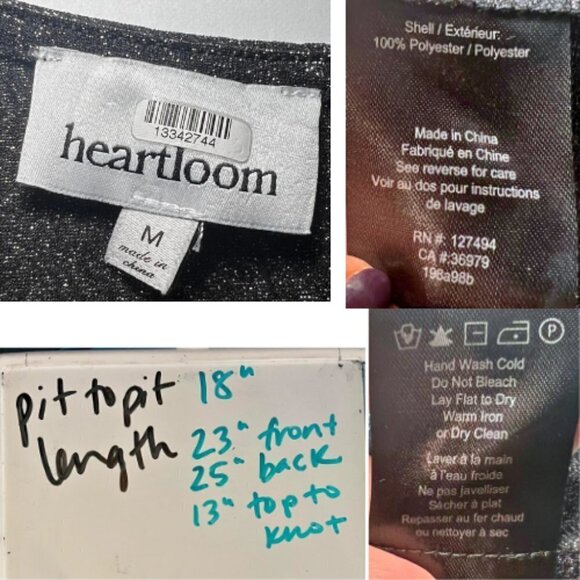 13342744
heartloom
M
made in
china
Shell / Extérieur:
100% Polyester / Polyester
Made in China
Fabriqué en Chine
See reverse for care
Voir au dos pour instructions
de lavage
RN #: 127494
CA #:36979
198a98b
pit to pit 18"
length 23" front
25" back
13" top to
knot
P
Hand Wash Cold
Do Not Bleach
Lay Flat to Dry
Warm Iron
or Dry Clean
Laver à la main
à l'eau froide
Ne pas javelliser
Sécher à plat
Repasser au fer chaud
ou nettoyer à sec